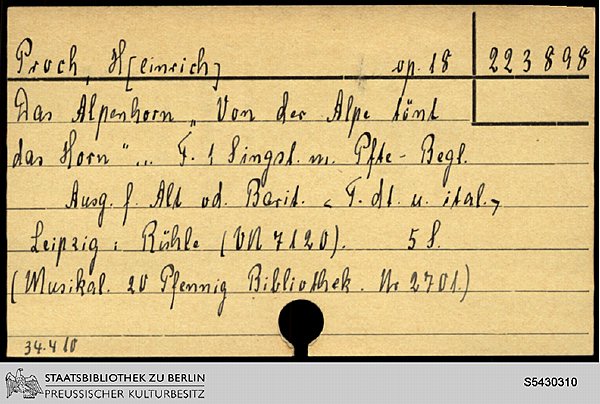 Proch, H[einrich] op. 18 223898
Das Alpenhorn „ Von der Alpe tönt
das Horn " .. F. 1 Singst. m. Pfte-Begl.
Ausg. f. Alt od. Barit. < T. dt. u. ital. >
Leipzig : Rühle (VN 7120). 5 S.
(Musikal. 20 Pfennig Bibliothek. Nr 2701.)
34.4
STAATSBIBLIOTHEK ZU BERLIN
PREUSSISCHER KULTURBESITZ
S5430310